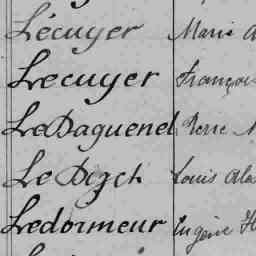 Lécuyer Marie
Lecuyer François
Le Daguenel Pierre
Le Dizch Louis
Ledormeur Eugène